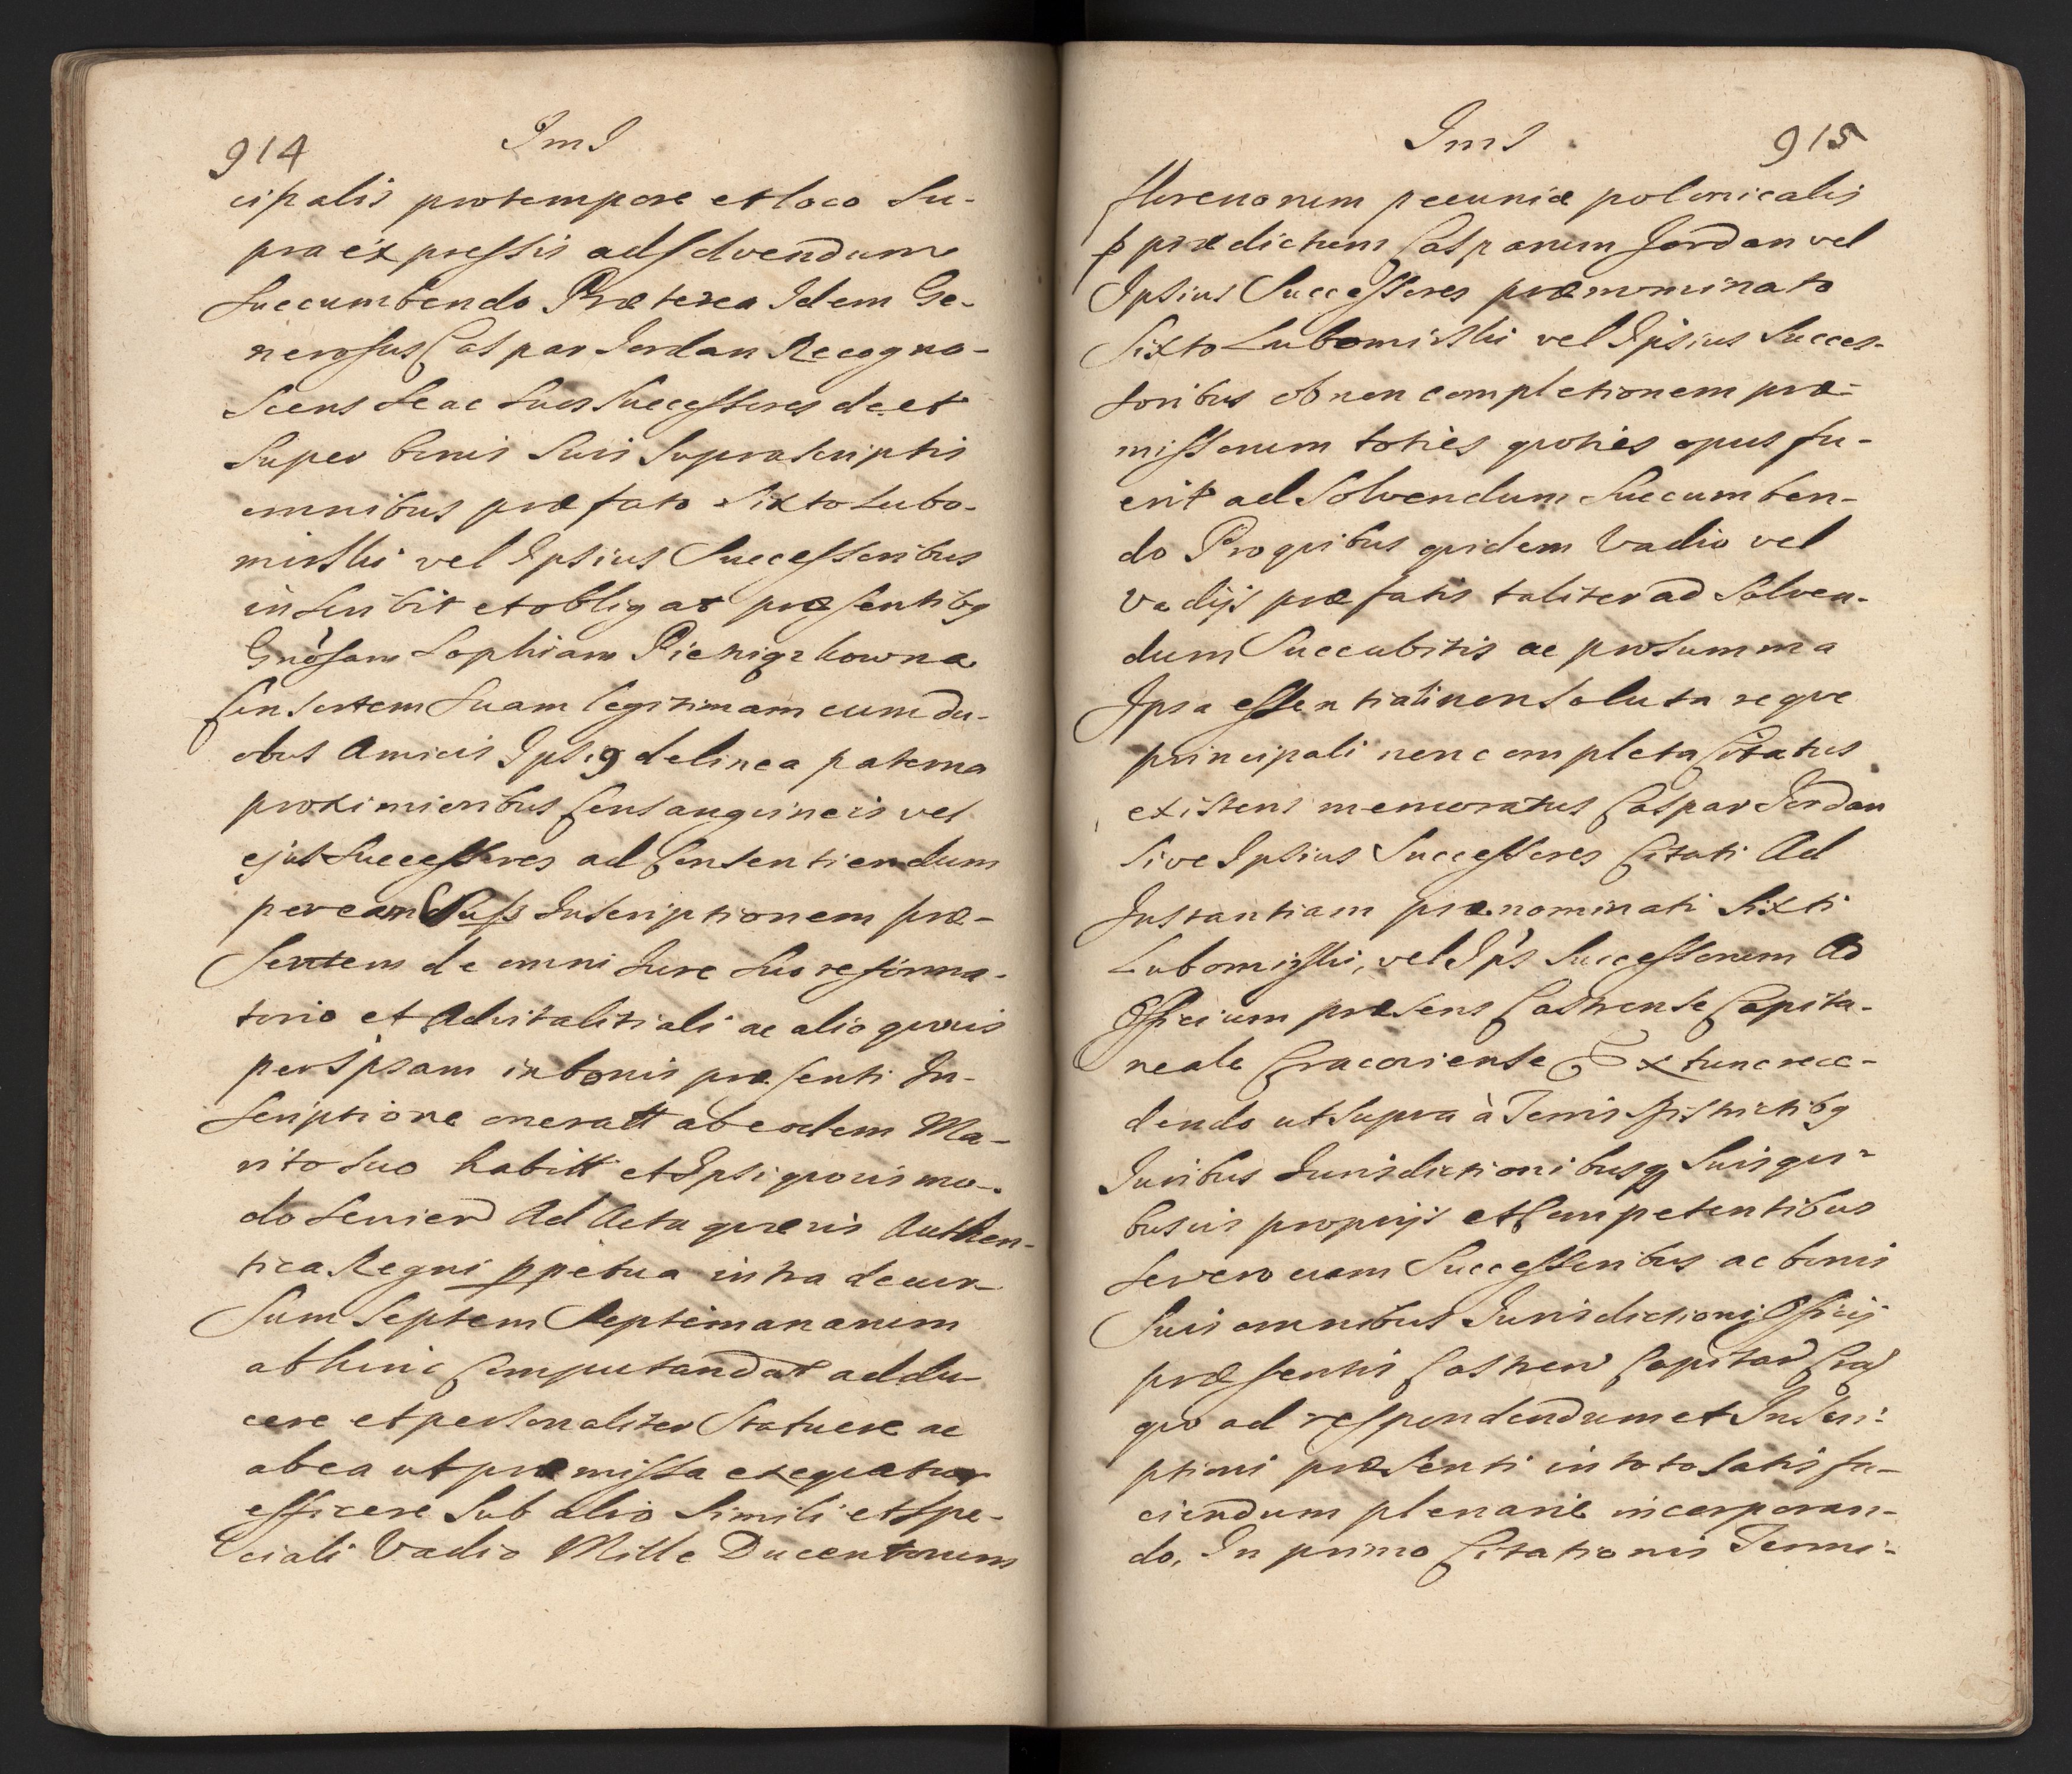 914
JmJ
cipalis protempore et loco Su-
pra expressis ad solvendum
Succumbendo Præterea Idem Ge-
nerosus Caspar Jordan Recogno-
Scens Se ac Suos Successores de et
Super bonis Suis Suprascriptis
omnibus præfato Sixto Lubo-
mirski vel Ipsius Successoribus
inscribit et obligat præsentibq
Gnosam Sophiam Pieniązkowna
Consortem Suam legitimam cum du-
obus Amicis Ipsi9 de linea paterna
proximioribus Consanguineis vel
ejus Successores ad Consentiendum
per eam Inscriptionem præ-
Sentem de omni Jure Suo reforma-
torio et Advitalitiali ac alio quovis
per Ipsam in bonis præsenti In-
Scriptione oneratt ab eodem Ma-
rito Suo habitt et Ipsi quovis mo-
do Servien Ad Acta quævis Authen-
tica Regni ppetua intra decur-
Sum Septem Septimanarum
ab hinc Computandar addu-
cere et personaliter Statuere ac
ab ea ut præmissa exequatur
efficere Sub alio Simili et Spe-
ciali Vadio Mille Ducentorum
JmJ
915
florenorum pecuniæ polonicalis
p prædictum Casparum Jordan vel
Ipsius Successores prænominato
Sixto Lubomirski vel Ipsius Succes-
soribus ob non completionem præ-
missorum toties quoties opus fu-
erit ad Solvendum Succumben-
do Pro quibus quidem Vadio vel
Vadijs præfatis taliter ad Solven-
dum Succubitis ac pro summa
Ipsa essentiali non Soluta reque
principali non completa Citatus
existens memoratus Caspar Jordan
Sive Ipsius Successores Citati Ad
Instantiam prænominati Sixti
Lubomirski, vel Ips Successorum Ad
Officium præsens Castrense Capita-
neale Cracoviense Ex tunc rece-
dendo ut Supra à Terris Districtibq
Juribus Jurisdictionibusq Suis qui-
busvis proprijs et Competentibus
Se vero cum Successoribus ac bonis
Suis omnibus Jurisdictioni Officij
præsentis Castren Capitan Crac
quo ad respondendum et Inscri-
ptioni præsenti in toto Satisfa-
ciendum plenarie incorporan-
do, In primo Citationis Termi-